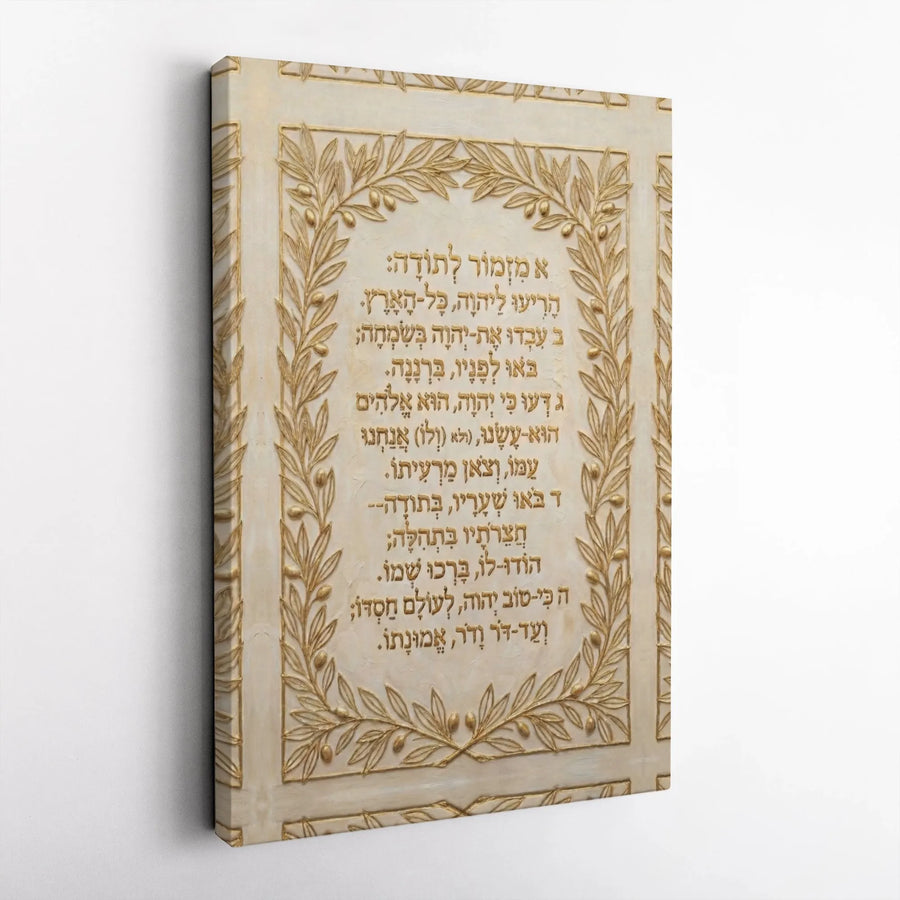 א מִזְמוֹר לְתוֹדָה:
הָרִיעוּ לַיהוָה, כָּל-הָאָרֶץ.
ב עִבְדוּ אֶת-יְהוָה בְּשִׂמְחָה;
בֹּאוּ לְפָנָיו, בִּרְנָנָה.
ג דְּעוּ כִּי יְהוָה, הוּא אֱלֹהִים
הוּא-עָשָׂנוּ, ולא (וְלוֹ) אֲנַחְנוּ
עַמּוֹ, וְצֹאן מַרְעִיתוֹ.
ד בֹּאוּ שְׁעָרָיו, בְּתוֹדָה--
חֲצֵרֹתָיו בִּתְהִלָּה;
הוֹדוּ-לוֹ, בָּרְכוּ שְׁמוֹ.
ה כִּי-טוֹב יְהוָה, לְעוֹלָם חַסְדּוֹ;
וְעַד-דֹּר וָדֹר, אֱמוּנָתוֹ.